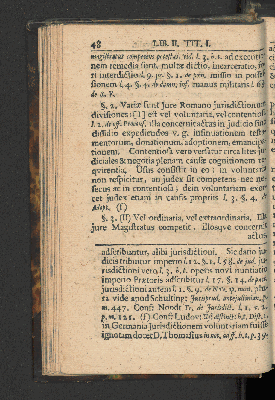 48 LIB. II. TIT. I.
magistratus competens præstat. vid. l. 3. h. t. ad executio-
nem remedia sunt, multæ dictio, incarceratio, in-
terdictio l. 9. pr. §. 1. de pœn. missio in posses-
sionem l. 4. §. de damn. inf. manus militaris l.
de R. V.
§. 2. Variæ sunt Jure Romano jurisdictionum
divisiones: [1] est vel voluntaria, vel contentiosa
l. 2. de off. Proconf. illa concernit actus in judicio sine
dissidio expediendos v. g. insinuationem testa-
mentorum, donationum, adoptionem, emancipa-
tionem. Contentiosa vero versatur circa lites ju-
diciales & negotia plenam causæ cognitionem re-
quirentia. Usus consistit in eo: in voluntaria
non respicitur, an judex sit competens nec ne;
secus ac in contentiosa; dein voluntariam exer-
cet judex etiam in causis propriis l. 3. §. 4. de
Adopt. (I)
§. 3. (II) Vel ordinaria, vel extraordinaria. Illa
jure Magistratus competit. Illosque concernit
actus
adscribuntur, alibi jurisdictioni. Sic datio ju-
dicis tribuitur imperio l. 12. §. 1. l. 58. de jud. ju-
risdictioni vero l. 3. h. t. operis novi nuntiatio
imperio Prætoris adscribitur l. 17. §. 14. de pact.
jurisdictioni autem l. 1. §. 9. de N. op. nunt. plu-
ra vide apud Schulting: Jurisprud. antejustinian. p.
m. 447. Conf. Noodt Tr. de Jurisdict. l. 1. c. 2.
p. m. 121. (I) Conf. Ludov: Us. distinct. h. t. Dist. 1.
in Germania Jurisdictionem voluntariam fuisse
ignotam docet D. Thomasius in not. ad ff. h. t. p. 37.